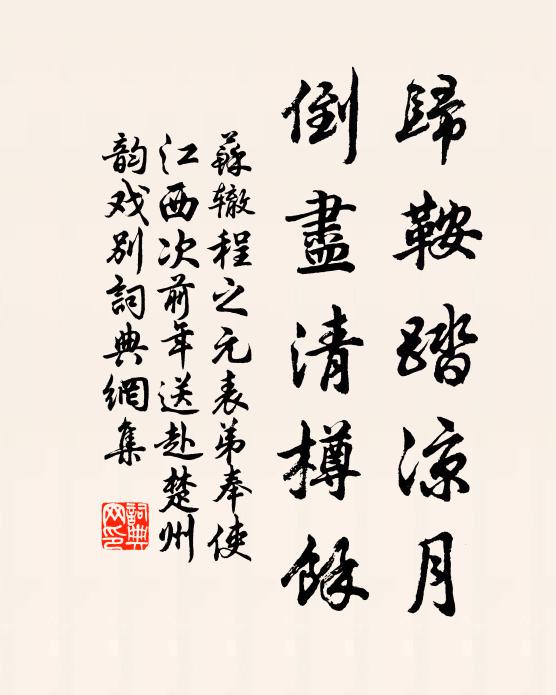 歸鞍踏涼月
倒盡清樽餘
蘇轍程之元表弟奉使
江西次前年送赴楚州
韵戏别詞典網集
詞典网印